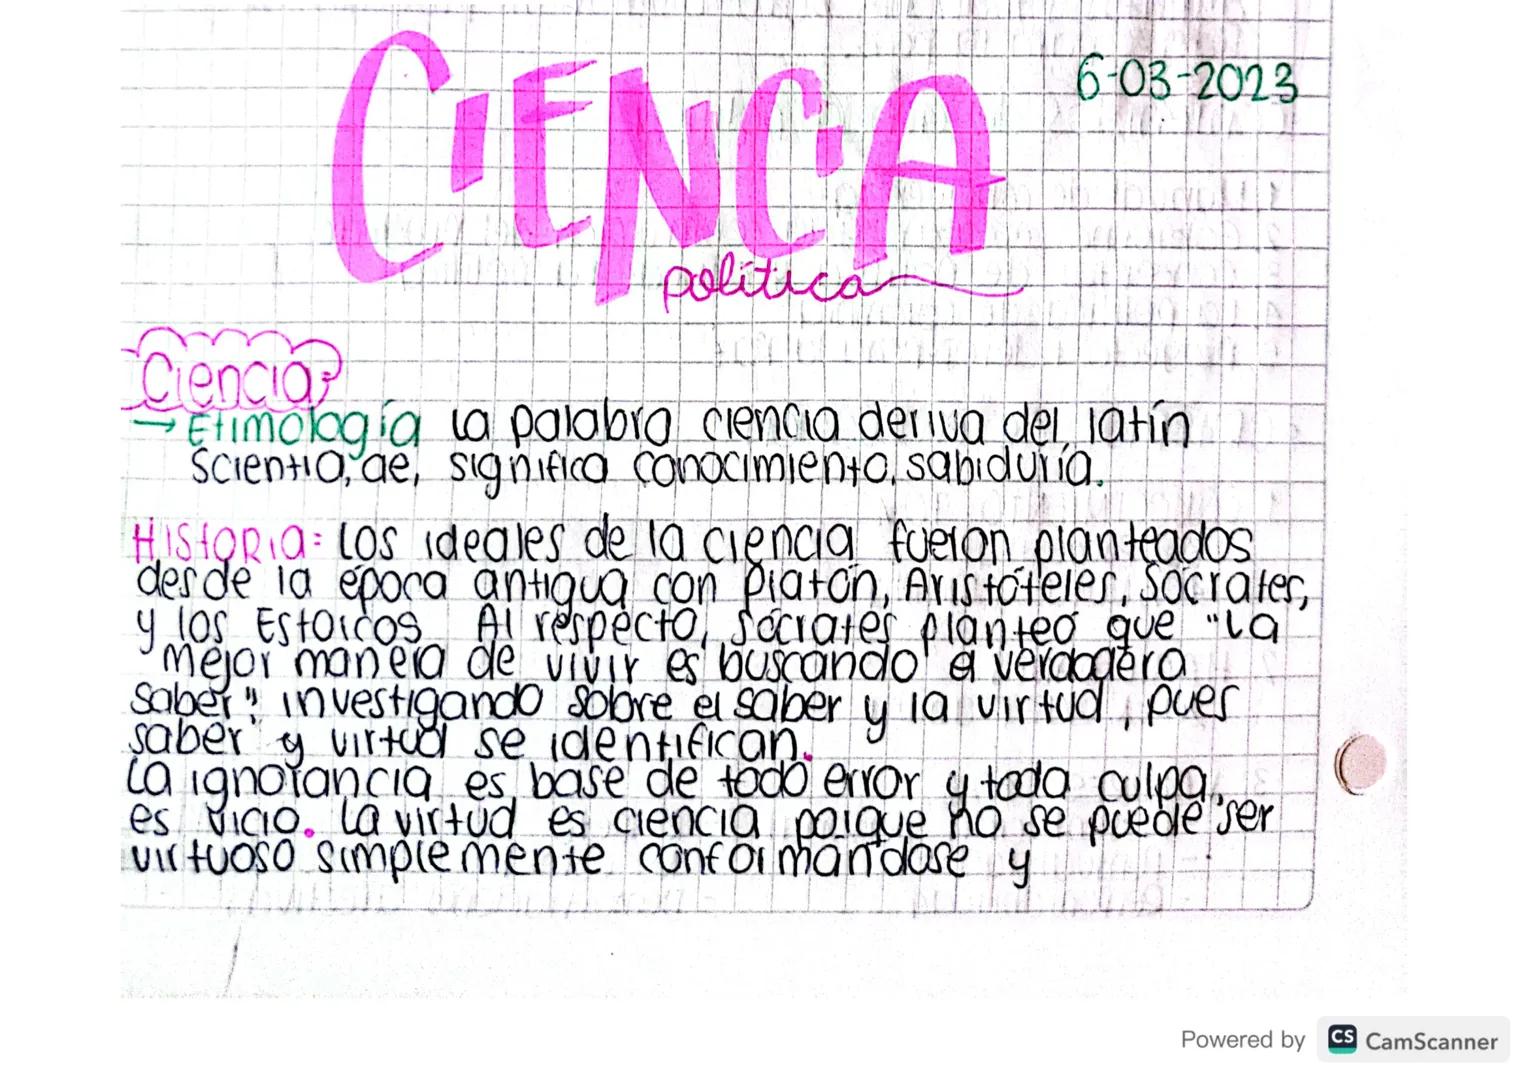 6-03-2023
CIENCIA
política
Ciencia:
→ Etimología La palabra ciencia deriva del latín
Scientia, ae, significa conocimiento, sabiduría.
HistoRia: Los ideales de la ciencia fueron planteados
desde la época antigua con Platón, Aristóteles, Sócrates,
y los Estoicos. Al respecto, Sócrates planteó que "La
mejor manera de vivir es buscando el verdadero
saber", investigando sobre el saber y la virtud, pues
saber y virtud se identifican.
La ignorancia es base de todo error y toda culpa,
es vicio. La virtud es ciencia porque no se puede ser
virtuoso simplemente conformándose y
Powered by CS CamScanner